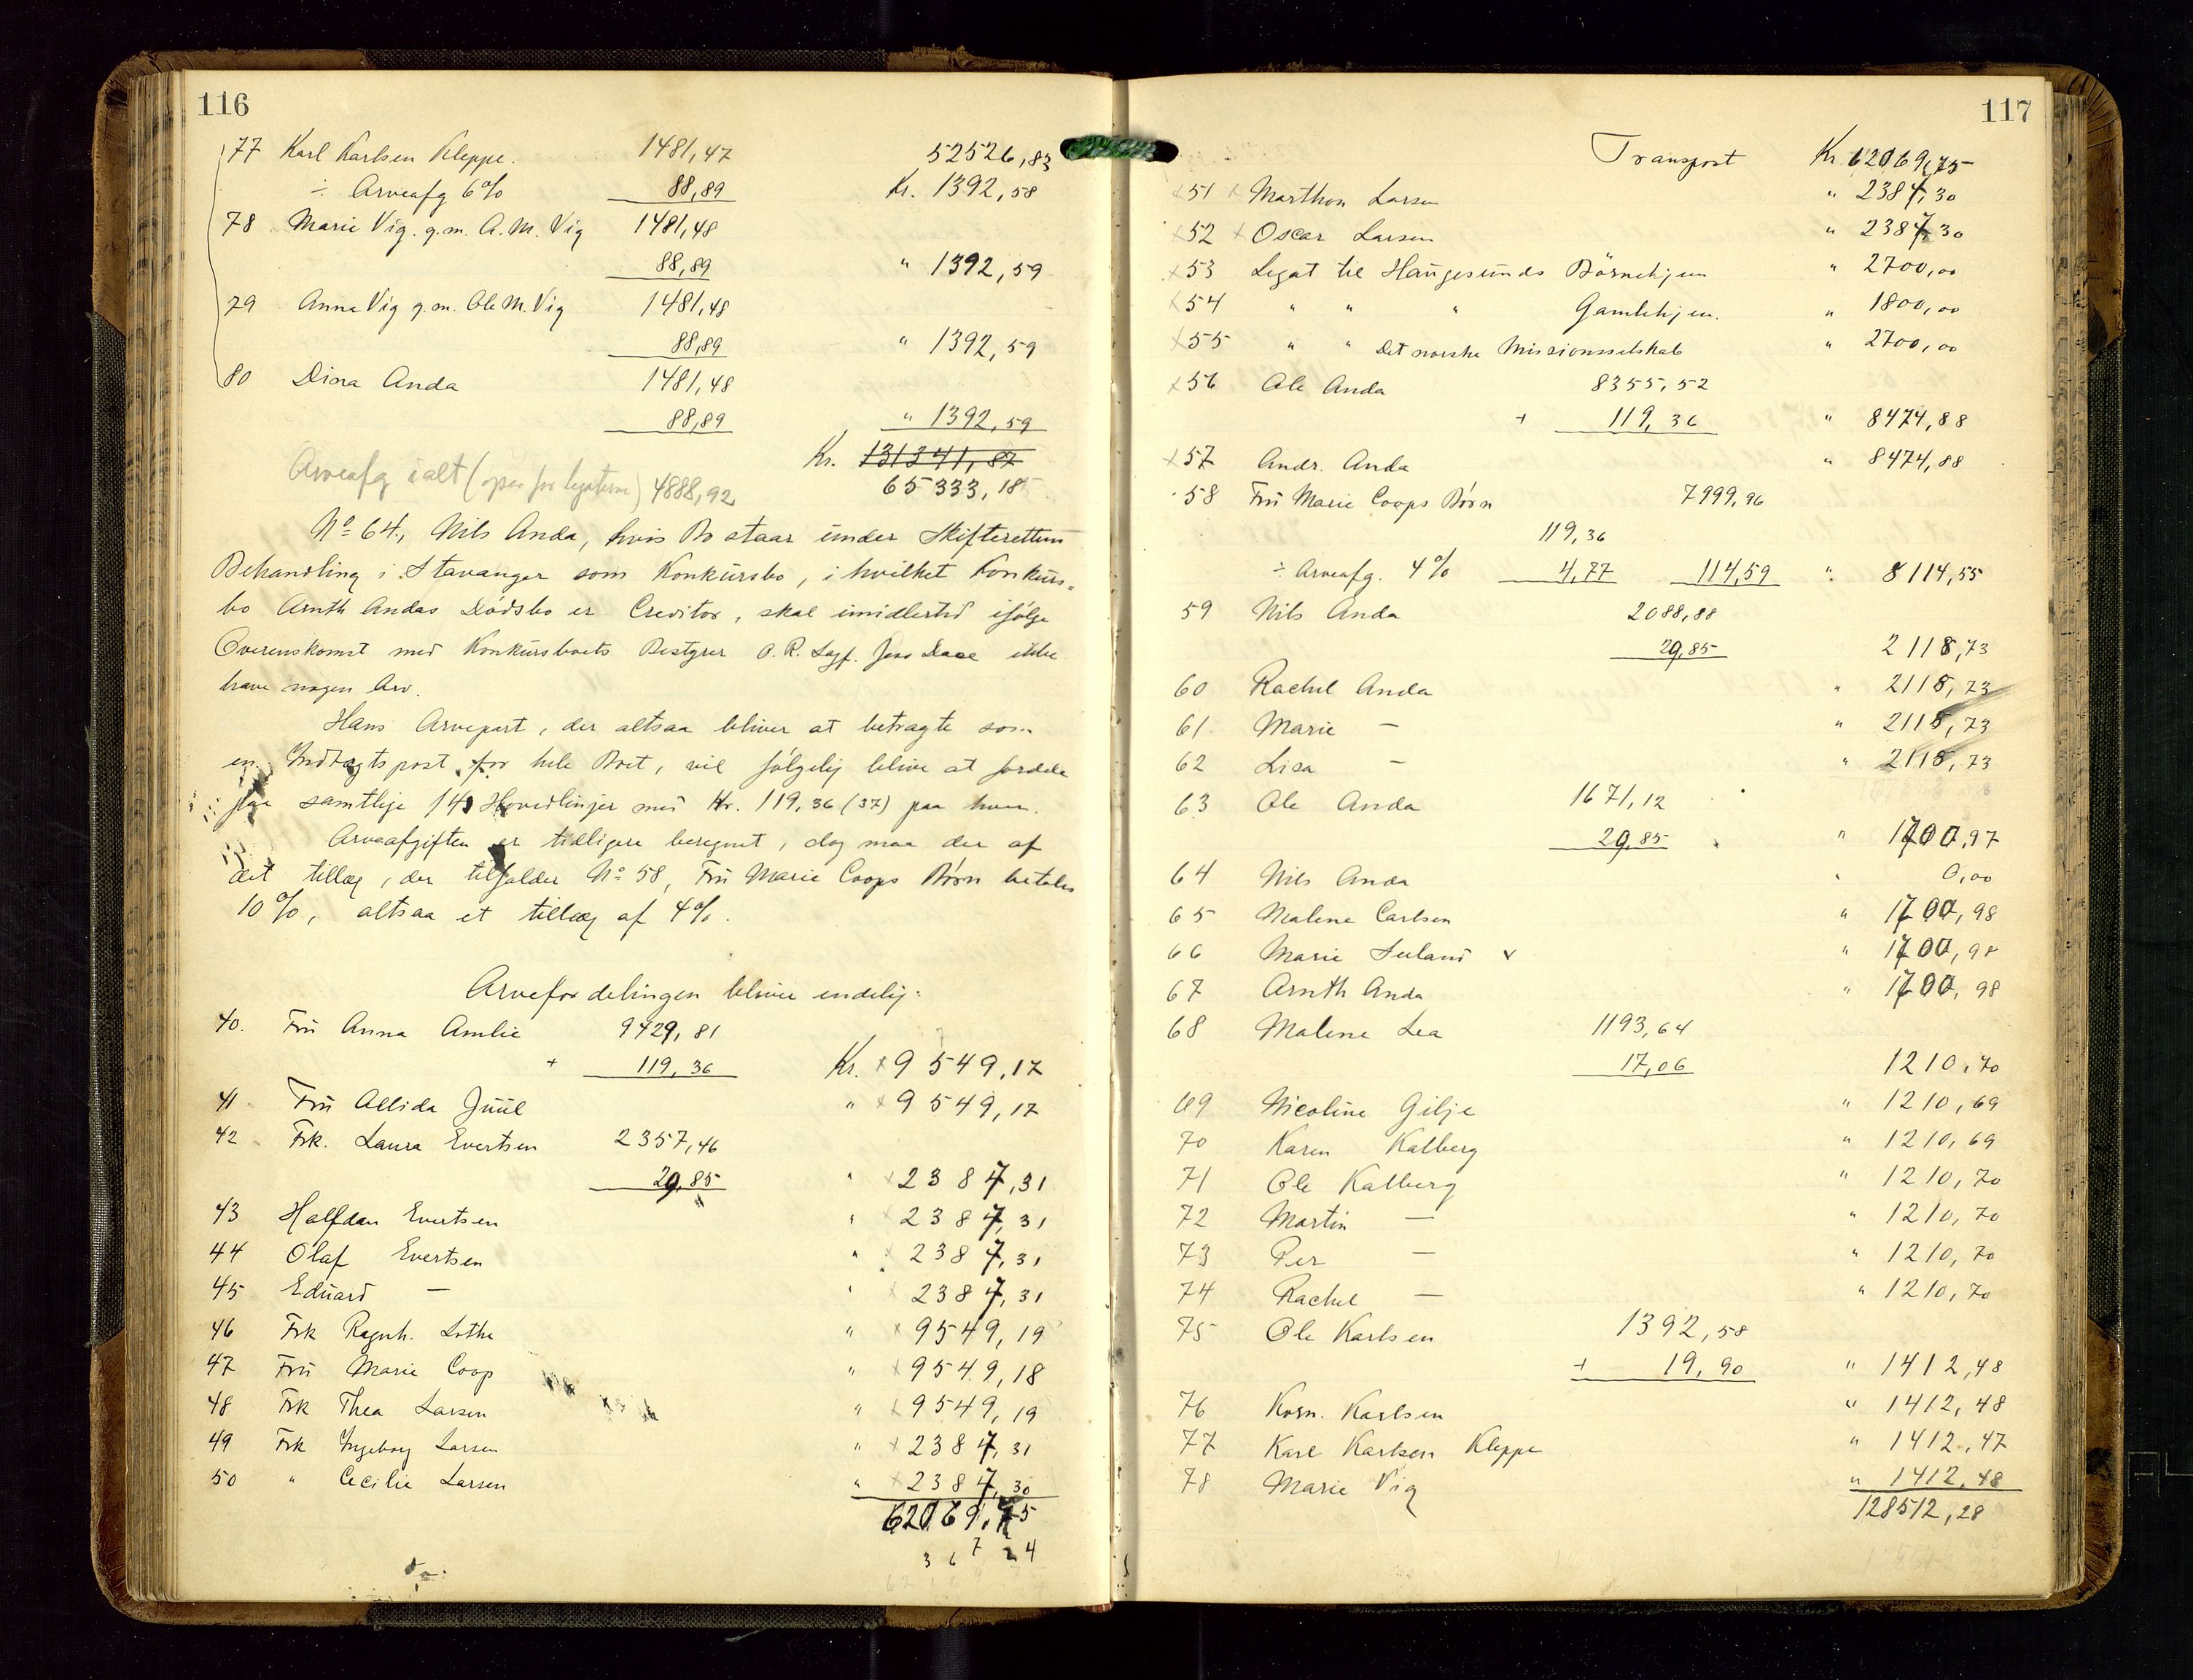 116
77 Karl Karlsen Kleppe. 1481,47 52526,83
÷ Arveafg 6% 88,89 Kr. 1392,58
78 Marie Vig. g.m. A.M. Vig 1481,48
88,89 " 1392,59
79 Anna Vig g.m. Ole M. Vig 1481,48
88,89 " 1392,59
80 Dina Anda 1481,48
88,89 " 1392,59
Kr. 131341,87
Arveafg ialt ( ) 4888,92 65333,18
No 64, Nils Anda, hvis Bo staar under Skifterettens
Behandling i Stavanger som Konkursbo, i hvilket Konkurs-
bo Arnth Andas Dødsbo er Creditor, skal imidlertid ifølge
Overenskomst med Konkursboets Bestyrer O.R. Sagf. ikke
have nogen Arv.
Hans Arvepart, der altsaa bliver at betragte som
en Indtægtspost for hele Boet, vil følgelig blive at fordele
paa samtlige 14 Hovedlinjer med Kr. 119,36 (37) paa hver.
Arveafgiften er tidligere beregnet, dog maa der af
det tillæg, der tilfalder No 58, Fru Marie Coops Børn betales
10%, altsaa et tillæg af 4%.
Arvefordelingen bliver endelig:
40. Fru Anna Amlie 9429,81
+ 119,36 Kr. × 9549,17
41 Fru Allida Juul " × 9549,17
42 Frk. Laura Evertsen 2357,46
29,85 " × 2387,31
43 Halfdan Evertsen " × 2387,31
44 Olaf Evertsen " 2387,31
45 Eduard — " × 2387,31
46 Frk Ragnh. Lothe " × 9549,19
47 Fru Marie Coop " × 9549,18
48 Frk Thea Larsen " × 9549,19
49 Frk Ingeborg Larsen " × 2387,31
50 " Cecilie Larsen " × 2387,30
62069,75
3 6 7 2 4
117
Transport Kr 62069,75
×51 × Marthon Larsen " 2387,30
×52 × Oscar Larsen " 2387,30
×53 Legat til Haugesunds Börnehjem " 2700,00
×54 " " " Gamlehjem. " 1800,00
×55 " " Det norske Missionsselskab " 2700,00
×56 Ole Anda 8355,52
+ 119,36 " 8474,88
×57 Andr. Anda " 8474,88
58 Fru Marie Coops Børn 7999,96
119,36
÷ Arveafg. 4% 4,77 114,59 " 8114,55
59 Nils Anda 2088,88
29,85 2118,73
60 Rachel Anda " 2118,73
61 Marie — " 2118,73
62 Lisa — " 2118,73
63 Ole Anda 1671,12
29,85 " 1700,97
64 Nils Anda " 0,00
65 Malene Carlsen " 1700,98
66 Marie Sulund v " 1700,98
67 Arnth Anda " 1700,98
68 Malene Lea 1193,64
17,06 1210,70
69 Nicoline Gilje " 1210,69
70 Karen Kalberg " 1210,69
71 Ole Kalberg " 1210,70
72 Martin — " 1210,70
73 Per — " 1210,70
74 Rachel — " 1210,70
75 Ole Karlsen 1392,58
+ 19,90 " 1412,48
76 Korn. Karlsen " 1412,48
77 Karl Karlsen Kleppe " 1412,47
78 Marie Vig " 1412,48
128512,28